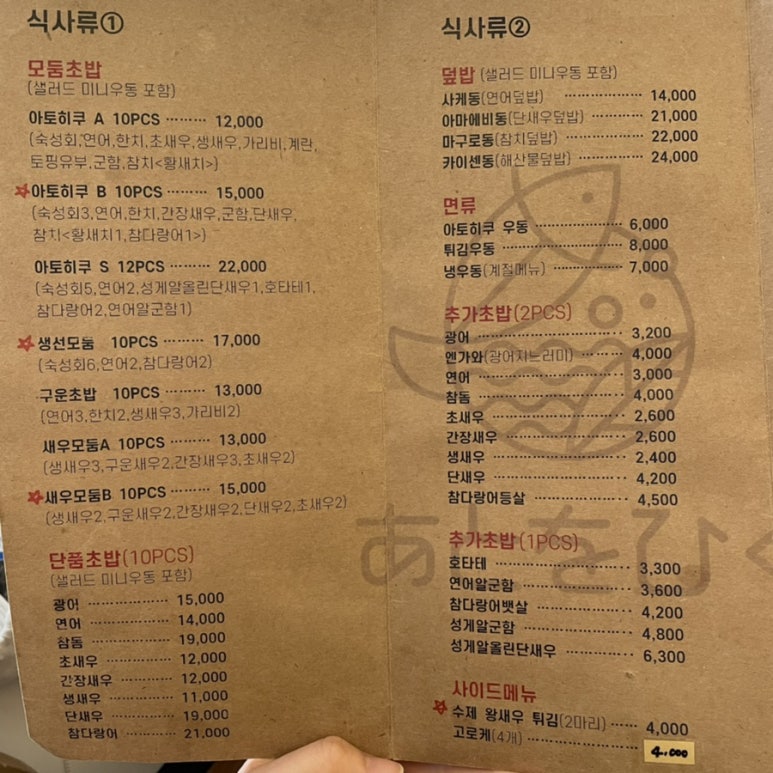 식사류①
모둠초밥
(샐러드 미니우동 포함)
아토히쿠 A 10PCS ········· 12,000
(숙성회,연어,한치,초새우,생새우,가리비,계란,
토핑유부,군함,참치<황새치>)
아토히쿠 B 10PCS ········· 15,000
(숙성회3,연어,한치,간장새우,군함,단새우,
참치<황새치1,참다랑어1>)
아토히쿠 S 12PCS ········· 22,000
(숙성회5,연어2,성게알올린단새우1,호타테1,
참다랑어2,연어알군함1)
생선모둠 10PCS ········· 17,000
(숙성회6,연어2,참다랑어2)
구운초밥 10PCS ········· 13,000
(연어3,한치2,생새우3,가리비2)
새우모둠A 10PCS ········· 13,000
(생새우3,구운새우2,간장새우3,초새우2)
새우모둠B 10PCS ········· 15,000
(생새우2,구운새우2,간장새우2,단새우2,초새우2)
단품초밥(10PCS)
(샐러드 미니우동 포함)
광어 ················ 15,000
연어 ················ 14,000
참돔 ················ 19,000
초새우 ················ 12,000
간장새우 ················ 12,000
생새우 ················ 11,000
단새우 ················ 19,000
참다랑어 ················ 21,000
식사류②
덮밥 (샐러드 미니우동 포함)
사케동(연어덮밥) ················ 14,000
아마에비동(단새우덮밥) ················ 21,000
마구로동(참치덮밥) ················ 22,000
카이센동(해산물덮밥) ················ 24,000
면류
아토히쿠 우동 ················ 6,000
튀김우동 ················ 8,000
냉우동(계절메뉴) ················ 7,000
추가초밥(2PCS)
광어 ················ 3,200
엔가와(광어지느러미) ········· 4,000
연어 ················ 3,000
참돔 ················ 4,000
초새우 ················ 2,600
간장새우 ················ 2,600
생새우 ················ 2,400
단새우 ················ 4,200
참다랑어등살 ················ 4,500
あとをひく
추가초밥(1PCS)
호타테 ················ 3,300
연어알군함 ················ 3,600
참다랑어뱃살 ················ 4,200
성게알군함 ················ 4,800
성게알올린단새우 ················ 6,300
사이드메뉴
수제 왕새우 튀김(2마리) ······ 4,000
고로케(4개) ················ 4,000